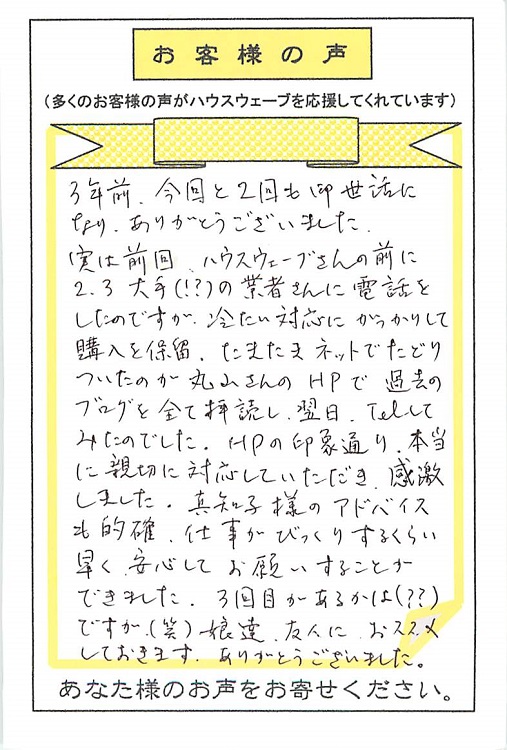 お客様の声
(多くのお客様の声がハウスウェーブを応援してくれています)
3年前、今回と2回も御世話に
なり、ありがとうございました。
実は前回、ハウスウェーブさんの前に
2.3大手(!?)の業者さんに電話を
したのですが、冷たい対応にがっかりして
購入を保留、たまたまネットでたどり
ついたのが丸山さんのHPで過去の
ブログを全て拝読し、翌日、Telして
みたのでした。HPの印象通り、本当
に親切に対応していただき、感激
しました。真知子様のアドバイス
も的確、仕事がびっくりするくらい
早く、安心してお願いすることが
できました。3回目があるかは(??)
ですが、(笑)娘達、友人に、おススメ
しておきます。ありがとうございました。
あなた様のお声をお寄せください。